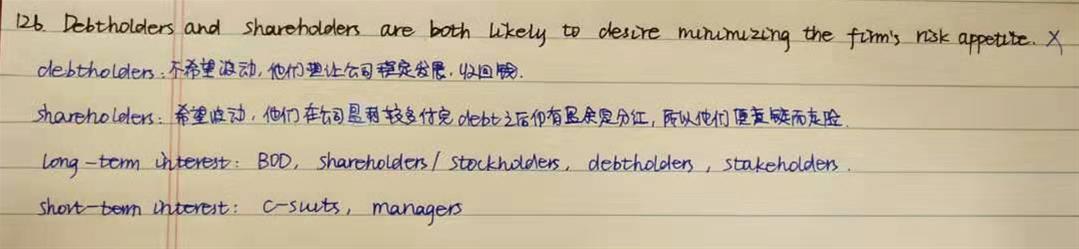 126. Debtholders and shareholders are both likely to desire minimizing the firm's risk appetite. X
debtholders: 不希望波动, 他们想让公司稳定发展, 收回钱.
shareholders: 希望波动, 他们在公司盈利较多付完debt之后仍有盈余是分红, 所以他们愿意冒险.
long-term interest: BOD, shareholders / stockholders, debtholders, stakeholders.
short-term interest: C-suits, managers